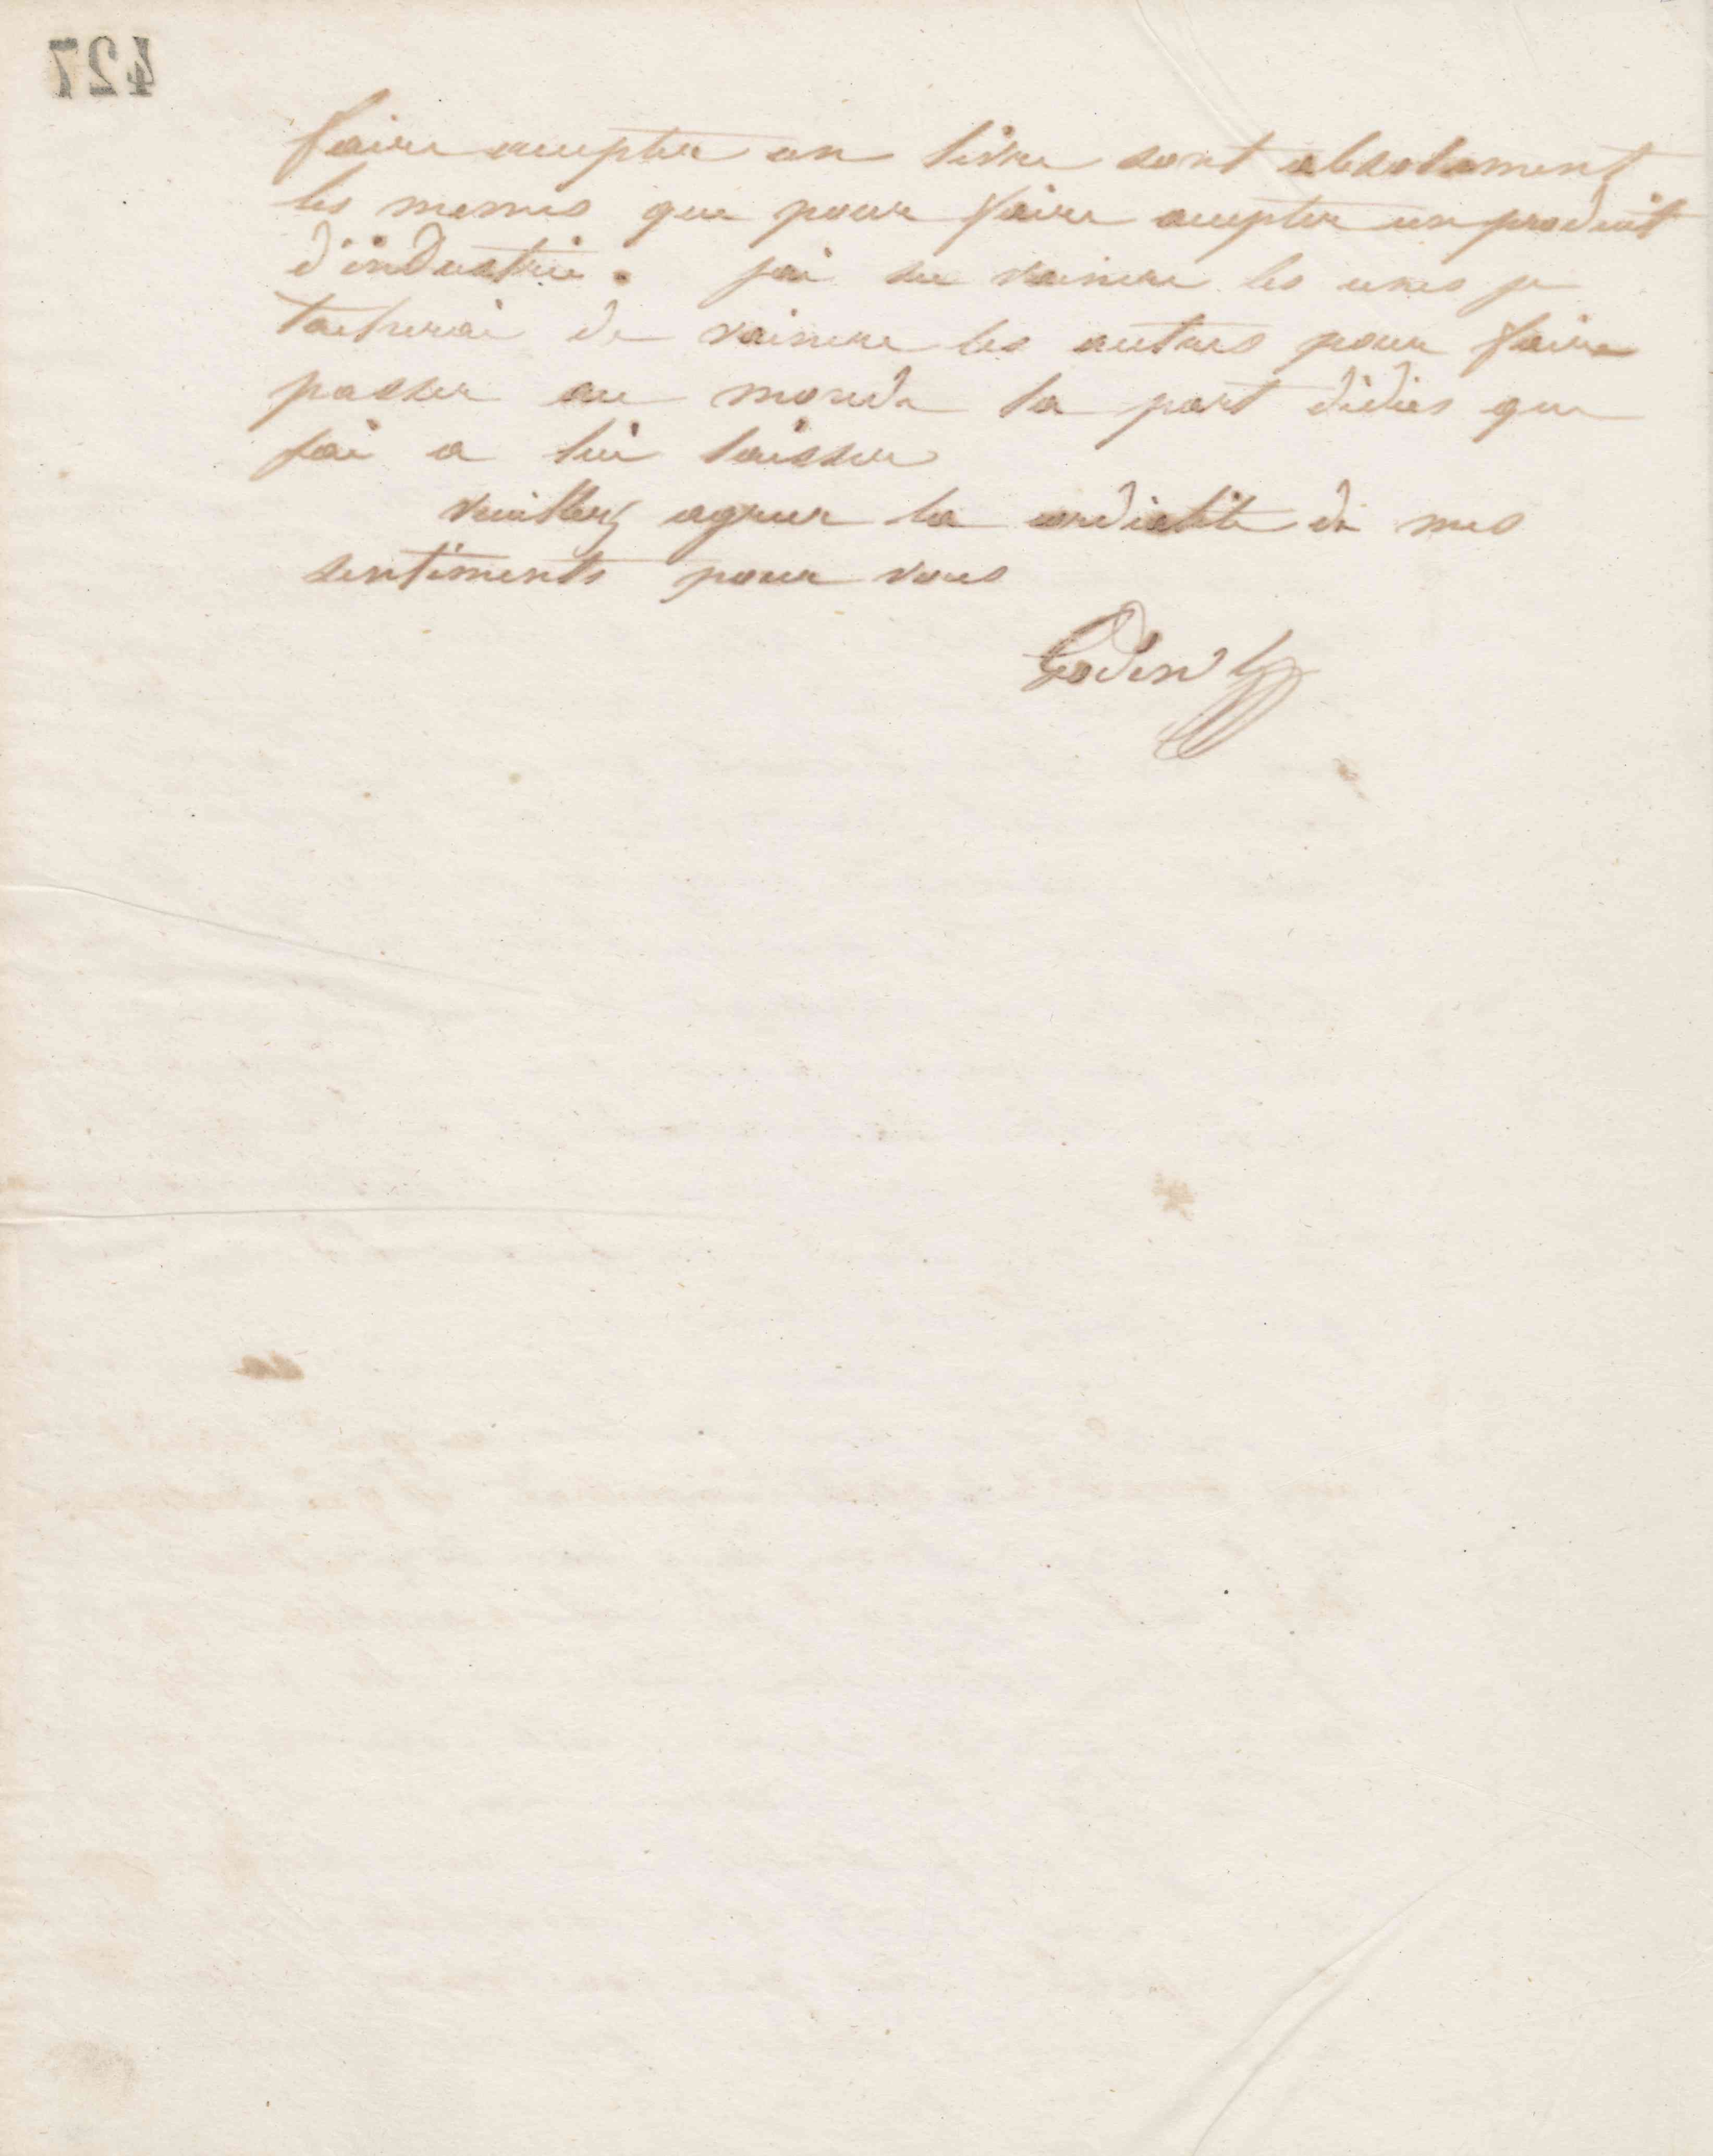 427
faire accepter un livre sont absolument
les memes que pour faire accepter un produit
d'industrie. jai su vaincre les unes je
tacherai de vaincre les autres pour faire
passer au monde la part didées que
jai a lui laisser
veuillez agreer la cordialité de mes
sentiments pour vous
Godin